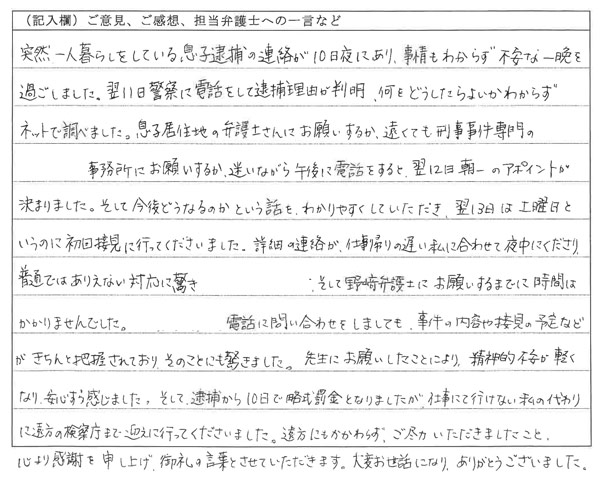 （記入欄）ご意見、ご感想、担当弁護士への一言など
突然一人暮らしをしている息子逮捕の連絡が10日夜にあり、事情もわからず不安な一晩を
過ごしました。翌11日警察に電話をして逮捕理由が判明、何をどうしたらよいかわからず
ネットで調べました。息子居住地の弁護士さんにお願いするか、遠くても刑事事件専門の
事務所にお願いするか、迷いながら午後に電話をすると、翌12日朝一のアポイントが
決まりました。そして今後どうなるのかという話を、わかりやすくしていただき、翌13日は土曜日と
いうのに初回接見に行ってくださいました。詳細の連絡が、仕事帰りの遅い私に合わせて夜中にくださり、
普通ではありえない対応に驚き そして野崎弁護士にお願いするまでに時間は
かかりませんでした。 電話に問い合わせをしましても、事件の内容や接見の予定など
がきちんと把握されており、そのことにも驚きました。先生にお願いしたことにより、精神的不安が軽く
なり、安心すら感じました。そして、逮捕から10日で略式罰金となりましたが、仕事にて行けない私の代わり
に遠方の検察庁まで迎えに行ってくださいました。遠方にもかかわらず、ご尽力いただきましたこと、
心より感謝を申し上げ、御礼の言葉とさせていただきます。大変お世話になり、ありがとうございました。